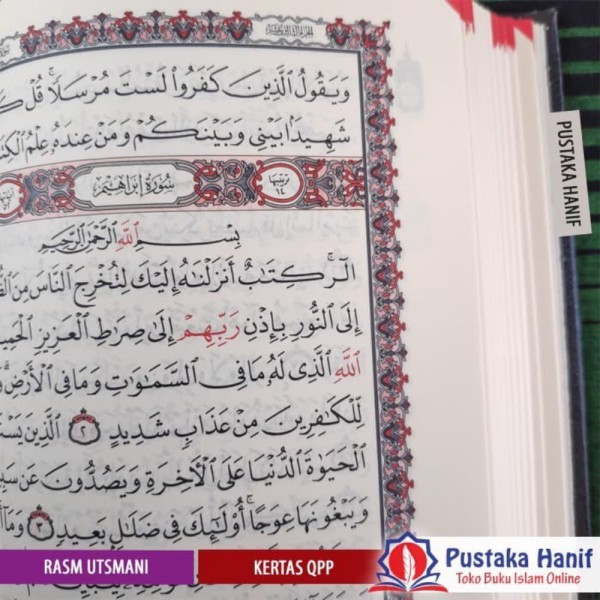 وَيَقُولُ الَّذِينَ كَفَرُوا لَسْتَ مُرْسَلًا ۚ قُلْ
شَهِيدًا بَيْنِي وَبَيْنَكُمْ وَمَنْ عِنْدَهُ عِلْمُ
سُورَةُ إِبْرَاهِيمَ
بِسْمِ اللَّهِ الرَّحْمَٰنِ الرَّحِيمِ
الٓرۚ كِتَابٌ أَنْزَلْنَاهُ إِلَيْكَ لِتُخْرِجَ النَّاسَ مِنَ
إِلَى النُّورِ بِإِذْنِ رَبِّهِمْ إِلَىٰ صِرَاطِ الْعَزِيزِ
اللَّهِ الَّذِي لَهُ مَا فِي السَّمَاوَاتِ وَمَا فِي الْأَرْضِ ۗ
لِلْكَافِرِينَ مِنْ عَذَابٍ شَدِيدٍ ٢ الَّذِينَ
الْحَيَاةَ الدُّنْيَا عَلَى الْآخِرَةِ وَيَصُدُّونَ عَنْ
وَيَبْغُونَهَا عِوَجًا ۚ أُولَٰئِكَ فِي ضَلَالٍ بَعِيدٍ ٣ وَمَا
PUSTAKA HANIF
RASM UTSMANI
KERTAS QPP
Pustaka Hanif
Toko Buku Islam Online